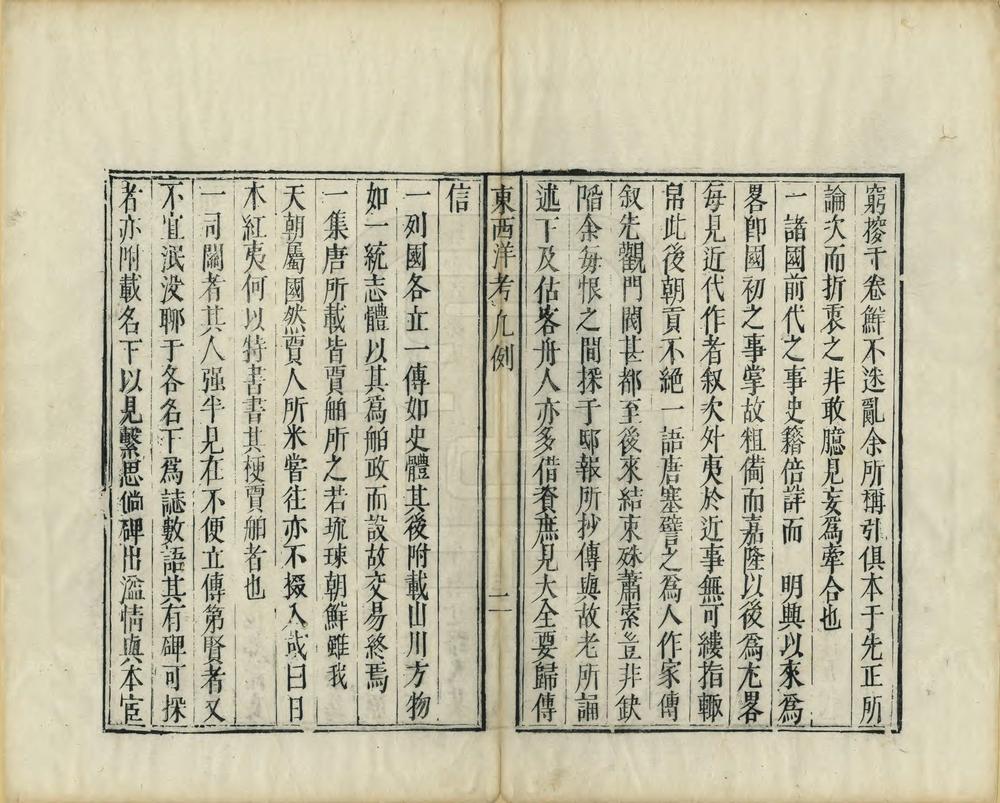 窮搜千卷鮮不迷亂余所稱引俱本于先正所
論次而折衷之非敢臆見妄為牽合也
一諸國前代之事史籍倍詳而　明興以來為
畧卽國初之事掌故粗備而嘉隆以後為尤畧
每見近代作者叙次外夷於近事無可縷指輒
帛此後朝貢不絕一語唐塞譬之為人作家傳
叙先觀門閥甚都至後來結束殊蕭索豈非缺
陷余每恨之間探于邸報所抄傳與故老所誦
述下及估客舟人亦多借資庶見大全要歸傳
東西洋考凡例　二
信
一列國各立一傳如史體其後附載山川方物
如一統志體以其為舶政而設故交易終焉
一集唐所載皆賈舶所之若琉球朝鮮雖我
天朝屬國然賈人所未嘗往亦不掇入或曰日
本紅夷何以特書書其梗賈舶者也
一司關者其人强半見在不便立傳第賢者又
不宜泯没聊于各名下為誌數語其有碑可採
者亦附載名下以見繫思倘碑出濫情與本宦